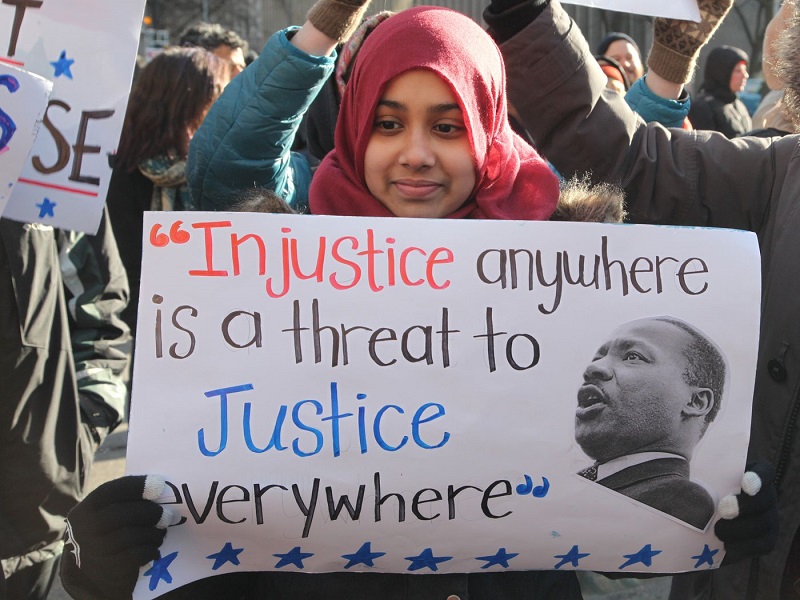 T
S
SE
“Injustice anywhere
is a threat to
Justice
everywhere”